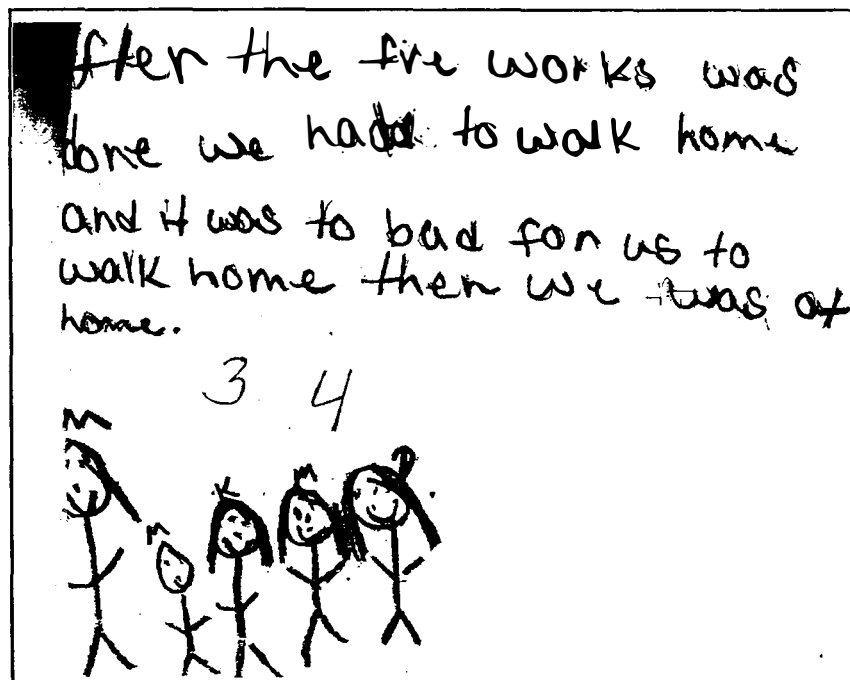 fter the fire works was
done we had to walk home
and it was to bad for us to
walk home then we was at
home.
3 4
M
M K M